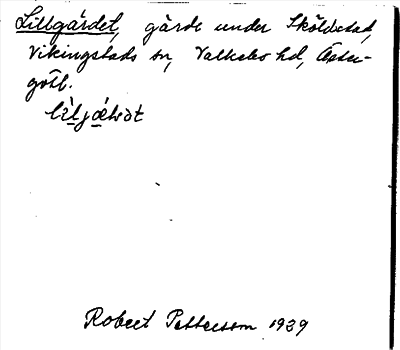 Lillgärdet, gärde under Sköldstad,
Vikingstads sn, Valkebo hd, Öster-
götl.
Robert Pettersson 1939